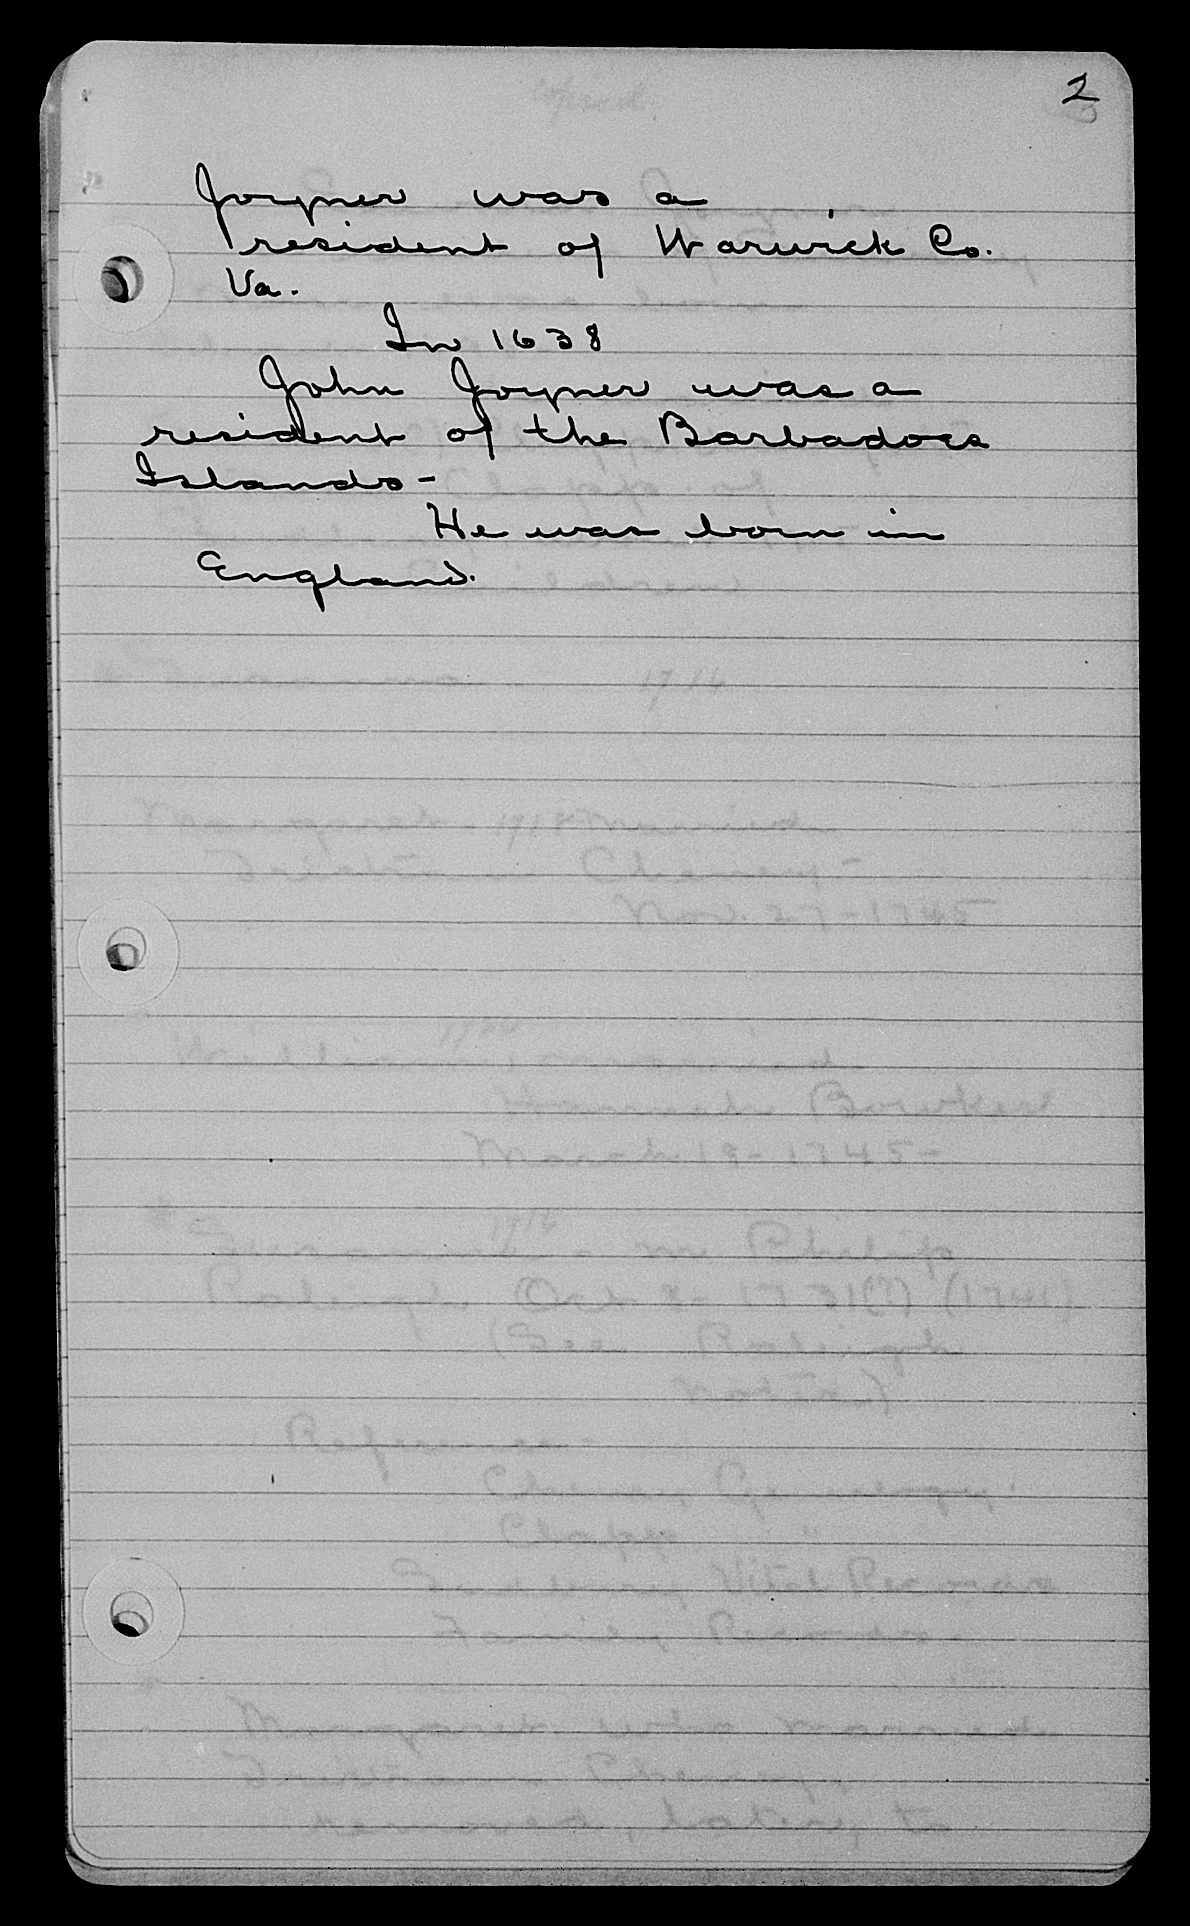 2
Joyner was a
resident of Warwick Co.
Va.
In 1638
John Joyner was a
resident of the Barbadoes
Islands-
He was born in
England.